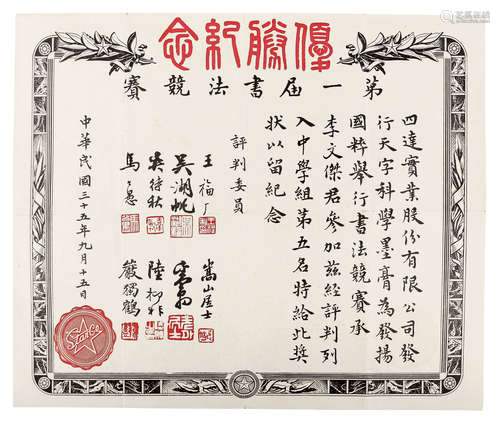 優勝紀念
第一屆書法競賽
四達實業股份有限公司發
行天字科學墨膏為發揚
國粹舉行書法競賽承
李文傑君參加茲經評判列
入中學組第五名特給此獎
狀以留紀念
評判委員
王福厂
嵩山居士
吳湖帆
吳待秋
陸抑非
馬公愚
嚴獨鶴
中華民國三十五年九月十五日